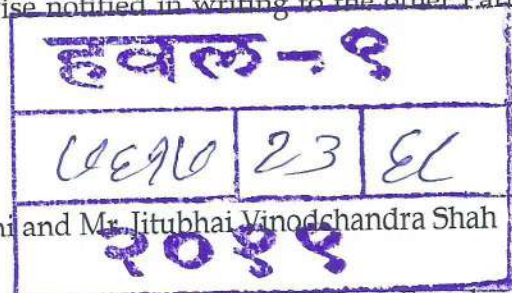 ise notified in writing to the other Part
हवल-१
७६१७ २३ ६८
ni and Mr. Jitubhai Vinodchandra Shah
२०११